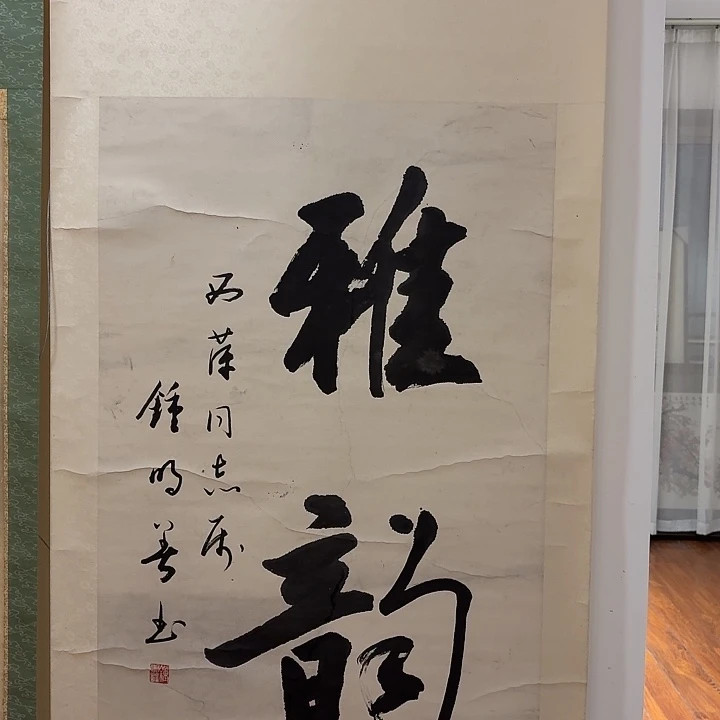 雅韵
西萍同志属
鍾明善书